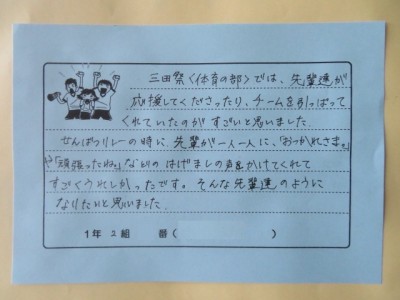 三田祭〈体育の部〉では、先輩達が
応援してくださったり、チームを引っぱって
くれていたのがすごいと思いました。
せんばつリレーの時に先輩が一人一人に、「おつかれさま。」
や「頑張ったね。」などのはげましの声をかけてくれて
すごくうれしかったです。そんな先輩達のように
なりたいと思いました。
1年 2組 番( )